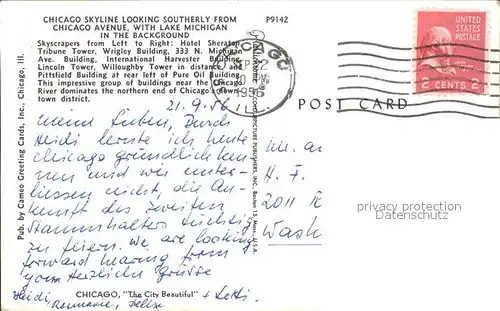 CHICAGO SKYLINE LOOKING SOUTHERLY FROM
CHICAGO AVENUE, WITH LAKE MICHIGAN
IN THE BACKGROUND
P9142
Skyscrapers from Left to Right: Hotel Sheraton,
Tribune Tower, Wrigley Building, 333 N. Michigan
Ave. Building, International Harvester Building,
Lincoln Tower, Willoughby Tower in distance, and
Pittsfield Building at rear left of Pure Oil Building.
This impressive group of buildings near the Chicago
River dominates the northern end of Chicago's down
town district.
CHICAGO
SEP
1956
ILL.
UNITED STATES
POSTAGE
2 CENTS 2
POST CARD
21.9.56
Meine Lieben, Durch
Heidi lernte ich heute
Chicago gründlich ken-
nen und wir unter-
liessen nicht, die An-
kunft des zweiten
Stammhalters tüchtig
zu feiern. We are looking
forward hearing from
you Herzliche Grüsse
Heidi, Felix + Lotti.
Mr. a
H. F.
2011
Wash
privacy protection
Datenschutz
Pub. by Cameo Greeting Cards, Inc., Chicago, Ill.
PUBLISHERS, INC., Boston 15, Mass., U.S.A.
CHICAGO, "The City Beautiful"